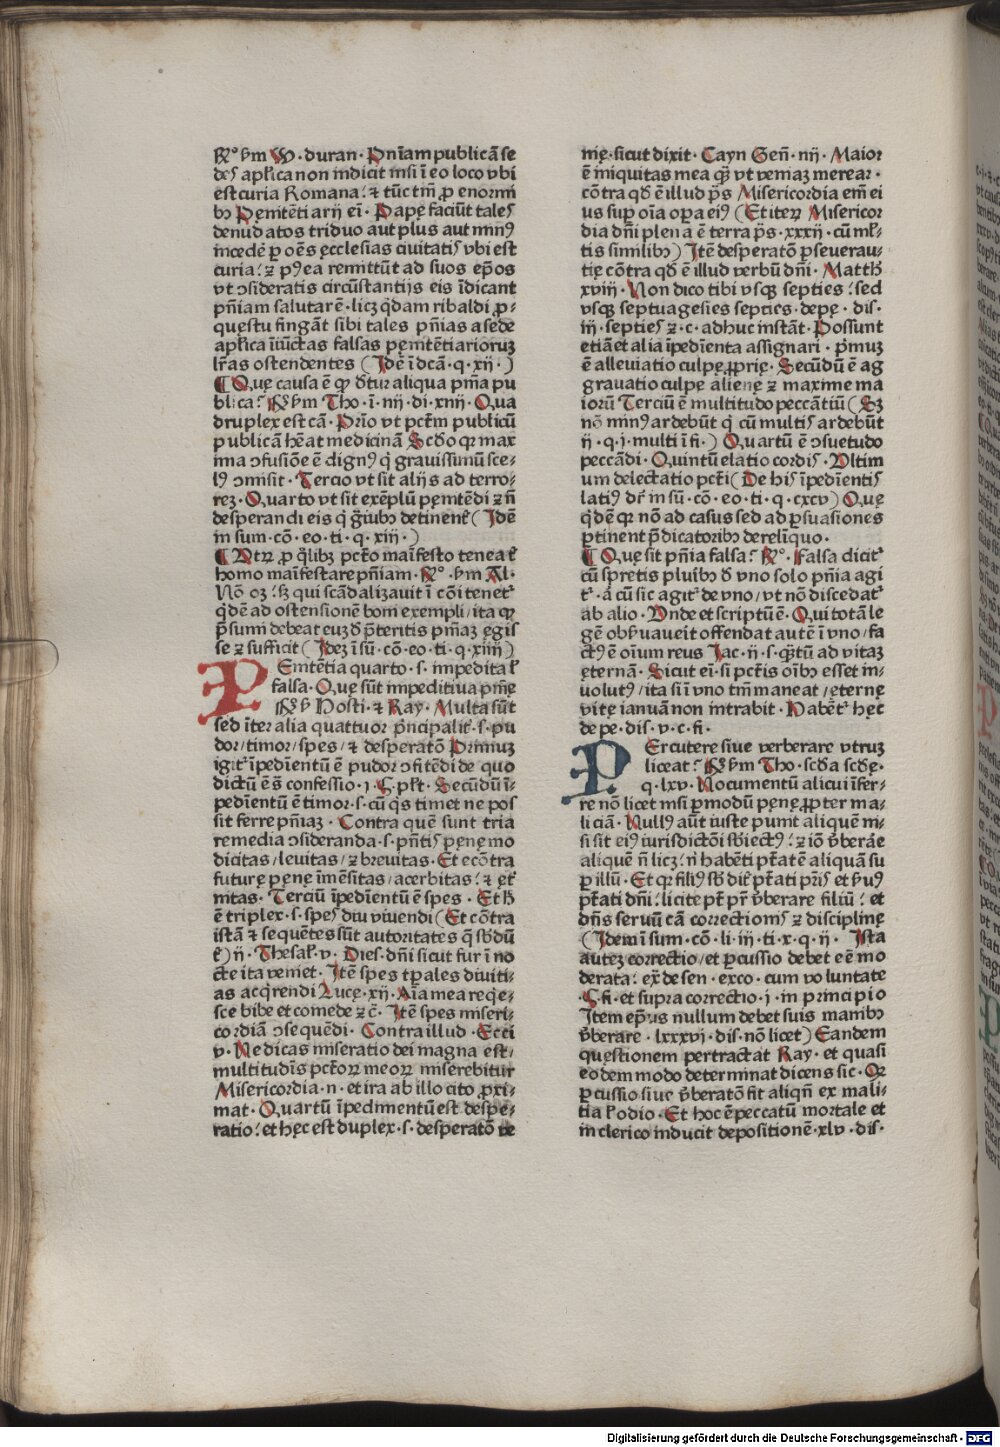 R̷º ẜm W · duran · Pn̄iam publicā se
des aplica non indicit nisi ī eo loco vbi
est curia Romana: ⁊ tūc tm̄ ꝓ enormi
bꝫ Pęnitētiarij eī · Papę faciūt tales
denudatos triduo aut plus aut minꝰ
incedē ꝑ oēs ęcclesias ciuitatis vbi est
curia: ⁊ pꝰea remittūt ad suos ep̄os
vt ↄsideratis circūstantijs eis īdicant
pn̄iam salutarē · licꝫ qdam ribaldi ꝓ-
questu fingāt sibi tales pn̄ias a sede
aplica īiūctas falsas pęnitētiarioruꝫ
lr̄as ostendentes ( Idē ī dcā · q · xij · )
¶ Quę causa ē ꝙ dr̄tur aliqua pn̄ia pu
blica: R̷º ẜm Tho · ī · iiij · di · xiiij · Qua
druplex est cā · Prīo vt pctm̄ publicū
publicā hēat medicinā Scd̄o qꝛ max
ima ↄfusiōe ē dignꝰ q̇ grauissimū sce-
lꝰ ↄmisit · Tercio vt sit alijs ad terro-
reꝫ · Quarto vt sit exēplū pęnitēdi ⁊ n̄
desperandi eis q̇ ḡuibꝫ detinent᷑ ( Idē
in sum · cō · eo · ti · q · xiij · )
¶ Vtꝝ ꝓ q̇libꝫ pctō maīfesto teneat᷑
homo maīfestare pn̄iam · R̷º · ẜm Al ·
Nō oꝫ: sꝫ qui scādalizauit ī cōi tenet᷑
q̇dē ad ostensionē boni exempli / ita ꝙ
p̄sumi debeat euꝫ d̄ p̄teritis pn̄iaꝫ ęgis
se ⁊ sufficit ( Ideꝫ ī sū · cō · eo · ti · q · xiiij )
PEnitētia quarto · s · impedita ł
falsa · Quę sūt impeditiua pn̄ię
R̷º ẜ Hosti · ⁊ Ray · Multa sūt
sed īter alia quattuor p̄ncipalit᷑ · s · pu
dor / timor / spes / ⁊ desperatō Primuꝫ
igit᷑ īpedientū ē pudor ↄfitēdi de quo
dictū ē s̄ confessio · j · §. pꝉt · Secūdū ī-
pedientū ē timor · s · cū q̇s timet ne pos
sit ferre pn̄iaꝫ · Contra quē sunt tria
remedia ↄsideranda · s · pn̄tis pęnę mo
dicitas / leuitas / ⁊ breuitas · Et ecōtra
futurę pęnę īmēsitas / acerbitas: ⁊ ęt᷑
nitas · Terciū īpedientū ē spes · Et h̄
ē triplex · s · spes diu viuendi ( Et cōtra
istā ⁊ sequētes sūt autoritates q̄ sb̄dū
t᷑ ) ij · Thesaƚ · v · Dies · dn̄i sicut fur ī no
cte ita veniet · Itē spes tꝑales diuiti-
as acq̇rendi Lucę · xij · Aīa mea req̇e-
sce bibe et comede ⁊ c̄ · Itē spes miseri-
cordiā ↄsequēdi · Contra illud · Ecci
v · Ne dicas miseratio dei magna est /
multitudīs pctōꝝ meoꝝ miserebitur
Misericordia · n · et ira ab illo cito ꝓxi-
mat · Quartū īpedimentū est despe-
ratio: et hęc est duplex · s · desperatō ve
nię · sicut dixit · Cayn Gen̄ · iiij · Maior
ē iniquitas mea ꝙ̄ vt veniaꝫ merear ·
cōtra qd̄ ē illud p̄s Misericordia em̄ ei
ius suꝑ oīa oꝑa eiꝰ ( Et iteꝝ Misericor
dia dn̄i plena ē terra p̄s · xxxij · cū mƚ-
tis similibꝫ ) Itē desperatō ꝑseuerau-
tię cōtra qd̄ ē illud verbū dn̄i · Matth̄
xviij · Non dico tibi vsqꝫ septies: sed
vsqꝫ septuagesies septies · de pę · dis ·
iij · septies ⁊ · c · adhuc instāt · Possunt
etiā et alia īpedīenta assignari · p̄muꝫ
ē alleuiatio culpę ꝓprię · Secūdū ē ag
grauatio culpę alienę ⁊ maxime ma
iorū Terciū ē multitudo peccātiū ( Sꝫ
nō minꝰ ardebūt q̇ cū multis ardebūt
ij · q · j · multi ī fi · ) Quartū ē ↄsuetudo
peccādi · Quintū elatio cordis · Vltim
um delectatio pctī ( De his īpedīentis
latiꝰ dr̄ in sū · cō · eo · ti · q · cxcv ) Quę
q̇dē qꝛ nō ad casus sed ad ꝑsuasiones
ꝑtinent p̄dicatoribꝫ derelīquo ·
¶ Quę sit pn̄ia falsa: R̷º · Falsa dicit᷑
cū spretis pluībꝫ d̄ vno solo pn̄ia agi
t᷑ · a cū sic agit᷑ de vno / vt nō discedat᷑
ab alio · Vnde et scriptū ē · Qui totā le
gē obẜuaueit offendat autē ī vno / fa
ctꝰ ē oīum reus Jac · ij · s · q̄tū ad vitaꝫ
eternā · Sicut eī · si pctīs oībꝫ esset in-
uolutꝰ / ita si ī vno tm̄ maneat / ęternę
vitę ianuā non intrabit · Habēt᷑ hęc
de pe · dis · v · c · fi ·
PErcutere siue verberare vtruꝫ
liceat: R̷º ẜm Tho · scd̄a scd̄ę ·
q · lxv · Nocumentū alicui īfer-
re nō licet nisi ꝑ modū pęnę ꝓpter ma-
liciā · Nullꝰ aūt iuste punit aliquē ni-
si sit eiꝰ iurisdictōi sb̄iectꝰ: ⁊ iō v̄berāe
aliquē n̄ licꝫ: ni habēti ptātē aliquā su
ꝑ illū · Et qꝛ filiꝰ sb̄ dit᷑ ptāti pr̄is et ẜuꝰ
ptāti dn̄i: licite pt̄ pr̄ v̄berare filiū: et
dn̄s seruū cā correctionis ⁊ disciplinę
( Idem ī sum · cō · li · iij · ti · x · q · ij · Ista
auteꝫ correctio / et ꝑcussio debet eē mo
derata: ex̄ de sen · exco · cum voluntate
· §. fi · et supra correctio · j · in principio
Item ep̄us nullum debet suis manibꝫ
v̄berare · lxxxvj · dis · nō licet ) Eandem
questionem pertractat Ray · et quasi
eodem modo determinat dicens sic · Qꝛ
ꝑcussio siue v̄beratō fit aliqn̄ ex mali-
tia ł odio · Et hoc ē peccatū mortale et
in clerico inducit depositionē · xlv · dis ·
Digitalisierung gefördert durch die Deutsche Forschungsgemeinschaft · DFG